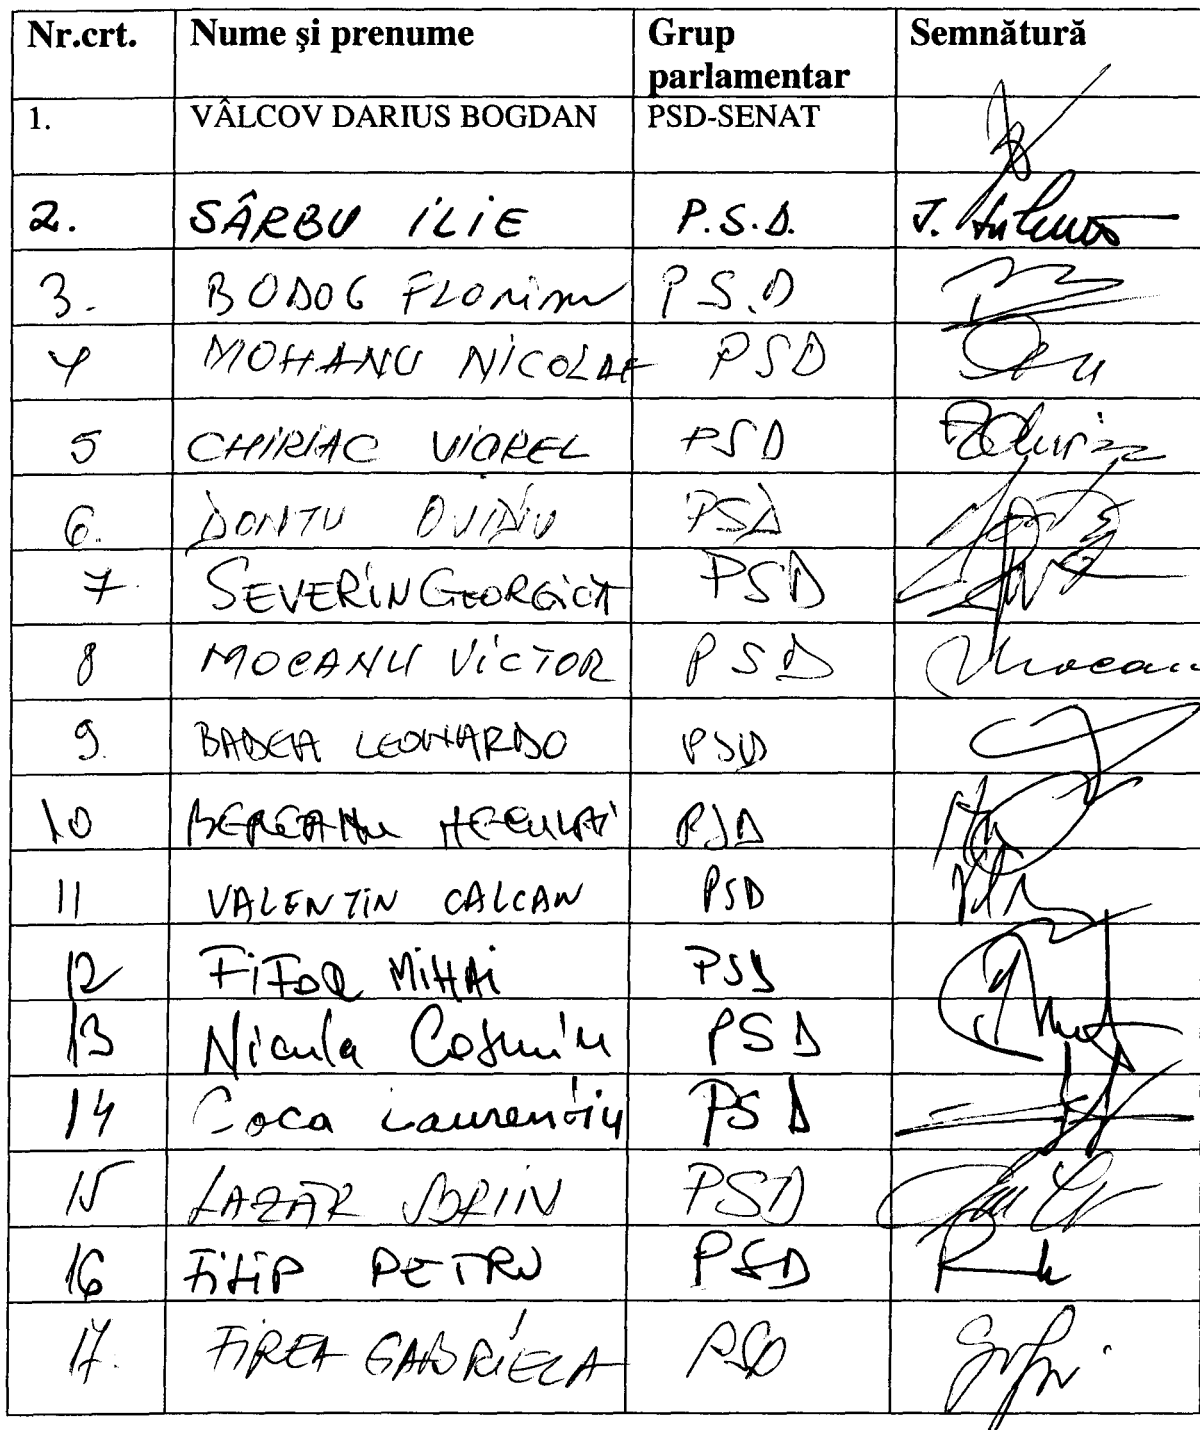 Nr.crt. Nume și prenume Grup parlamentar Semnătură
1. VÂLCOV DARIUS BOGDAN PSD-SENAT
2. SÂRBU ILIE P.S.D.
3. BODOG Florian P S.D
4 MOHANU NICOLAE PSD
5 CHIRIAC VIOREL PSD
6. DONTU OVIDIU PSD
7 SEVERIN GEORGICĂ PSD
8 MOCANU VICTOR PSD
9. BADEA LEONARDO PSD
10 BEREANU NECULAI PSD
11 VALENTIN CALCAN PSD
12 FIFOR MIHAI PSD
13 Nicula Cosmin PSD
14 Coca Laurențiu PSD
15 LAZĂR SORIN PSD
16 FILIP PETRU PSD
17. FIREA GABRIELA PSD